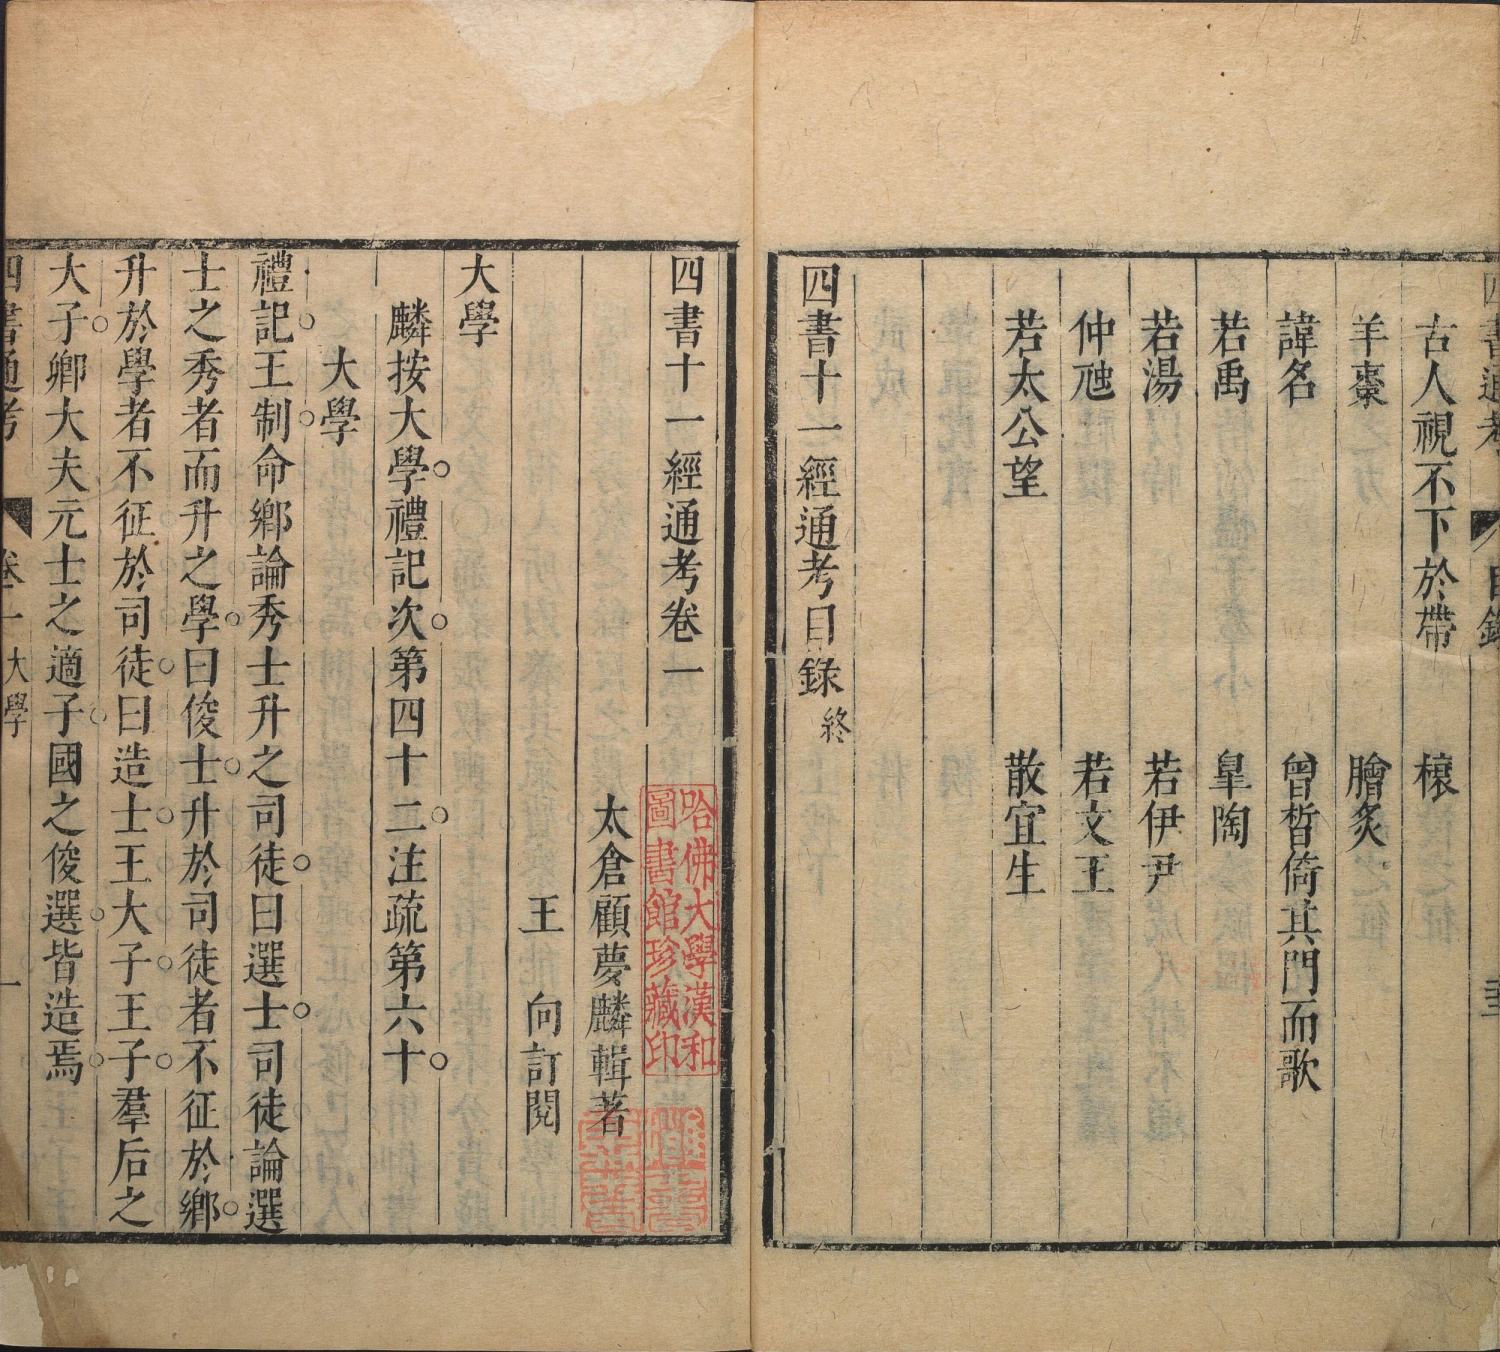 四書通考
目錄
古人視不下於帶 穣
羊棗 膾炙
諱名 曾晳倚其門而歌
若禹 臯陶
若湯 若伊尹
仲虺 若文王
若太公望 散宜生
四書十一經通考目錄終
四書十一經通考卷一
哈佛大學漢和
圖書館珍藏印
太倉顧夢麟輯著
王 向訂閱
大學
麟按大學禮記次第四十二注疏第六十
大學
禮記王制命鄉論秀士升之司徒曰選士司徒論選
士之秀者而升之學曰俊士升於司徒者不征於鄉
升於學者不征於司徒曰造士王大子王子羣后之
大子卿大夫元士之適子國之俊選皆造焉
四書通考
卷一 大學 一